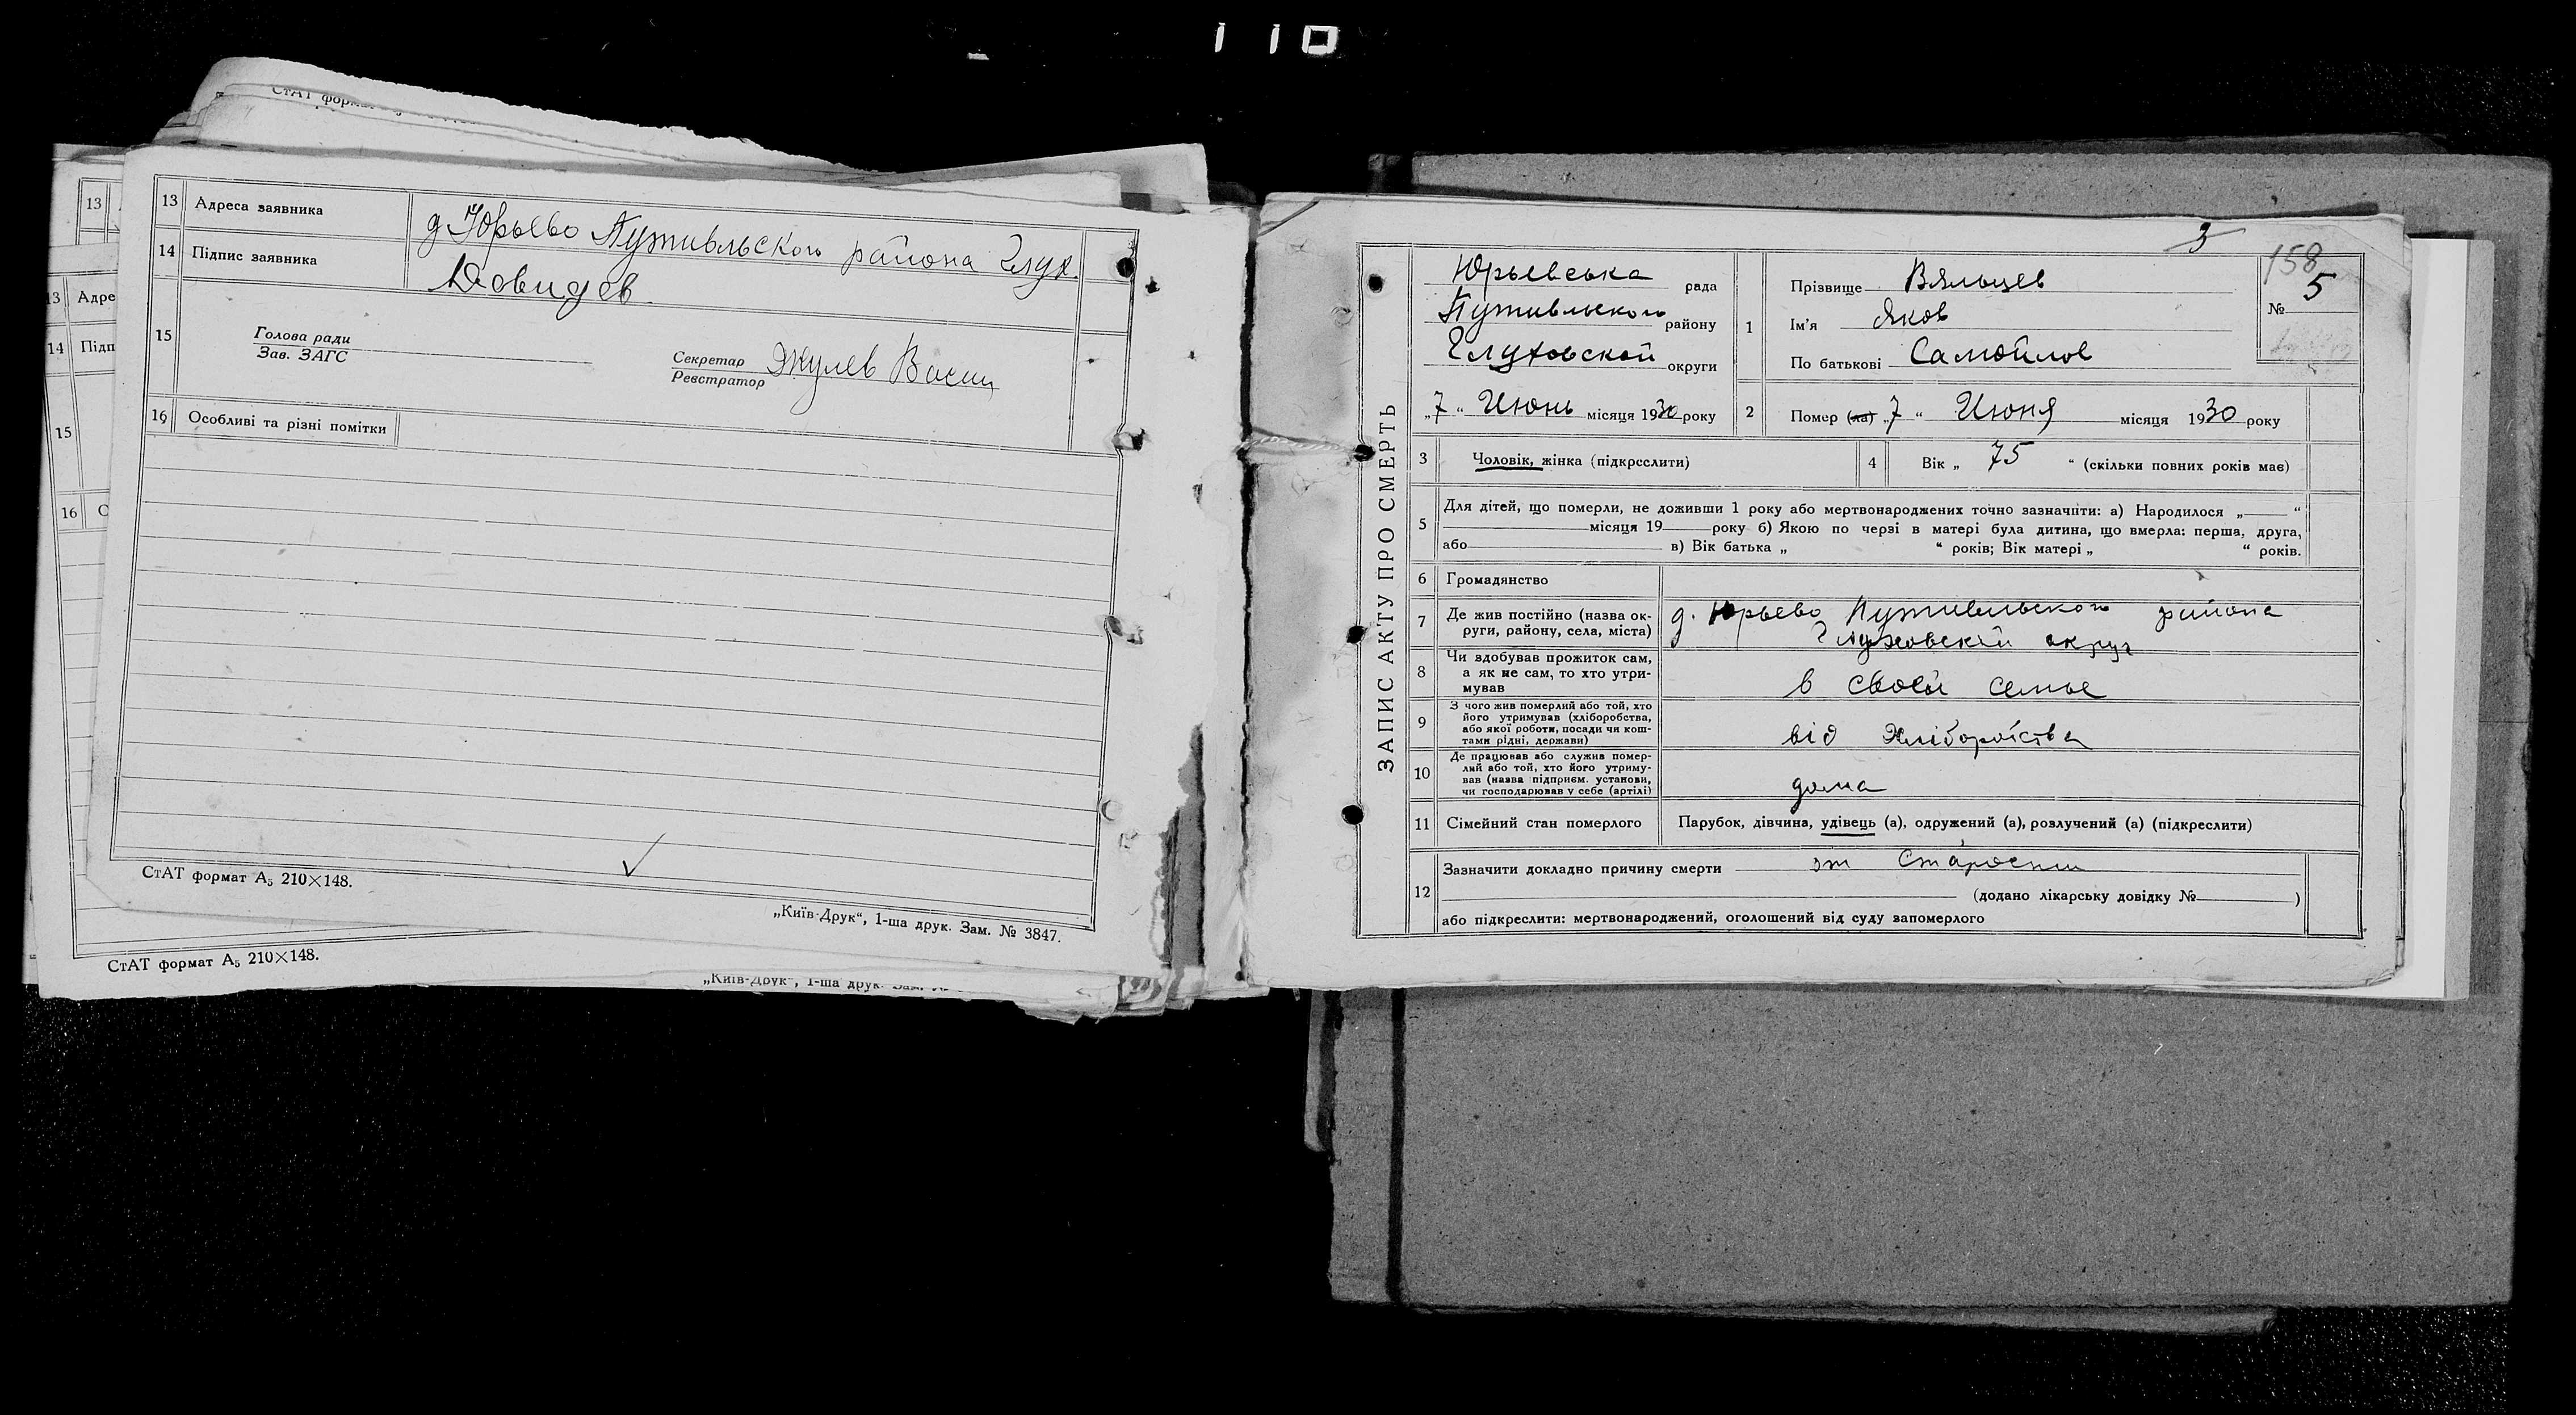 110
СтАТ форма
13 Адреса заявника д Юрьево Путивльского района Глух.
14 Підпис заявника Довидев
15 Голова ради
Зав. ЗАГС
Секретар
Реєстратор
Жулев Васил
16 Особливі та різні помітки
СтАТ формат А₅ 210×148.
„Київ-Друк“, 1-ша друк. Зам. № 3847.
13
13 Адре
14 Підп
15
16 С
СтАТ формат А₅ 210×148.
„Київ-Друк“, 1-ша друк. Зам. №
3
158
№ 5
ЗАПИС АКТУ ПРО СМЕРТЬ
Юрьевська рада
Путивльского району
Глуховской округи
„7“ Июнь місяця 1930 року
1 Прізвище Вяльцев
Ім’я Яков
По батькові Самойлов
2 Помер (ла) „7“ Июня місяця 1930 року
3 Чоловік, жінка (підкреслити)
4 Вік „ 75 “ (скільки повних років має)
5 Для дітей, що померли, не доживши 1 року або мертвонароджених точно зазначіти: а) Народилося „ “
місяця 19 року б) Якою по черзі в матері була дитина, що вмерла: перша, друга,
або в) Вік батька „ “ років; Вік матері „ “ років.
6 Громадянство
7 Де жив постійно (назва ок-
руги, району, села, міста)
д. Юрьево Путивльского района
Глуховской округ
8 Чи здобував прожиток сам,
а як не сам, то хто утри-
мував
в своей семье
9 З чого жив померлий або той, хто
його утримував (хліборобства,
або якої роботи, посади чи кош-
тами рідні, держави)
від Хліборобства
10 Де працював або служив помер-
лий або той, хто його утриму-
вав (назва підприєм. установи,
чи господарював у себе (артілі)
дома
11 Сімейний стан померлого Парубок, дівчина, удівець (а), одружений (а), розлучений (а) (підкреслити)
12 Зазначити докладно причину смерти от старости
(додано лікарську довідку № )
або підкреслити: мертвонароджений, оголошений від суду запомерлого